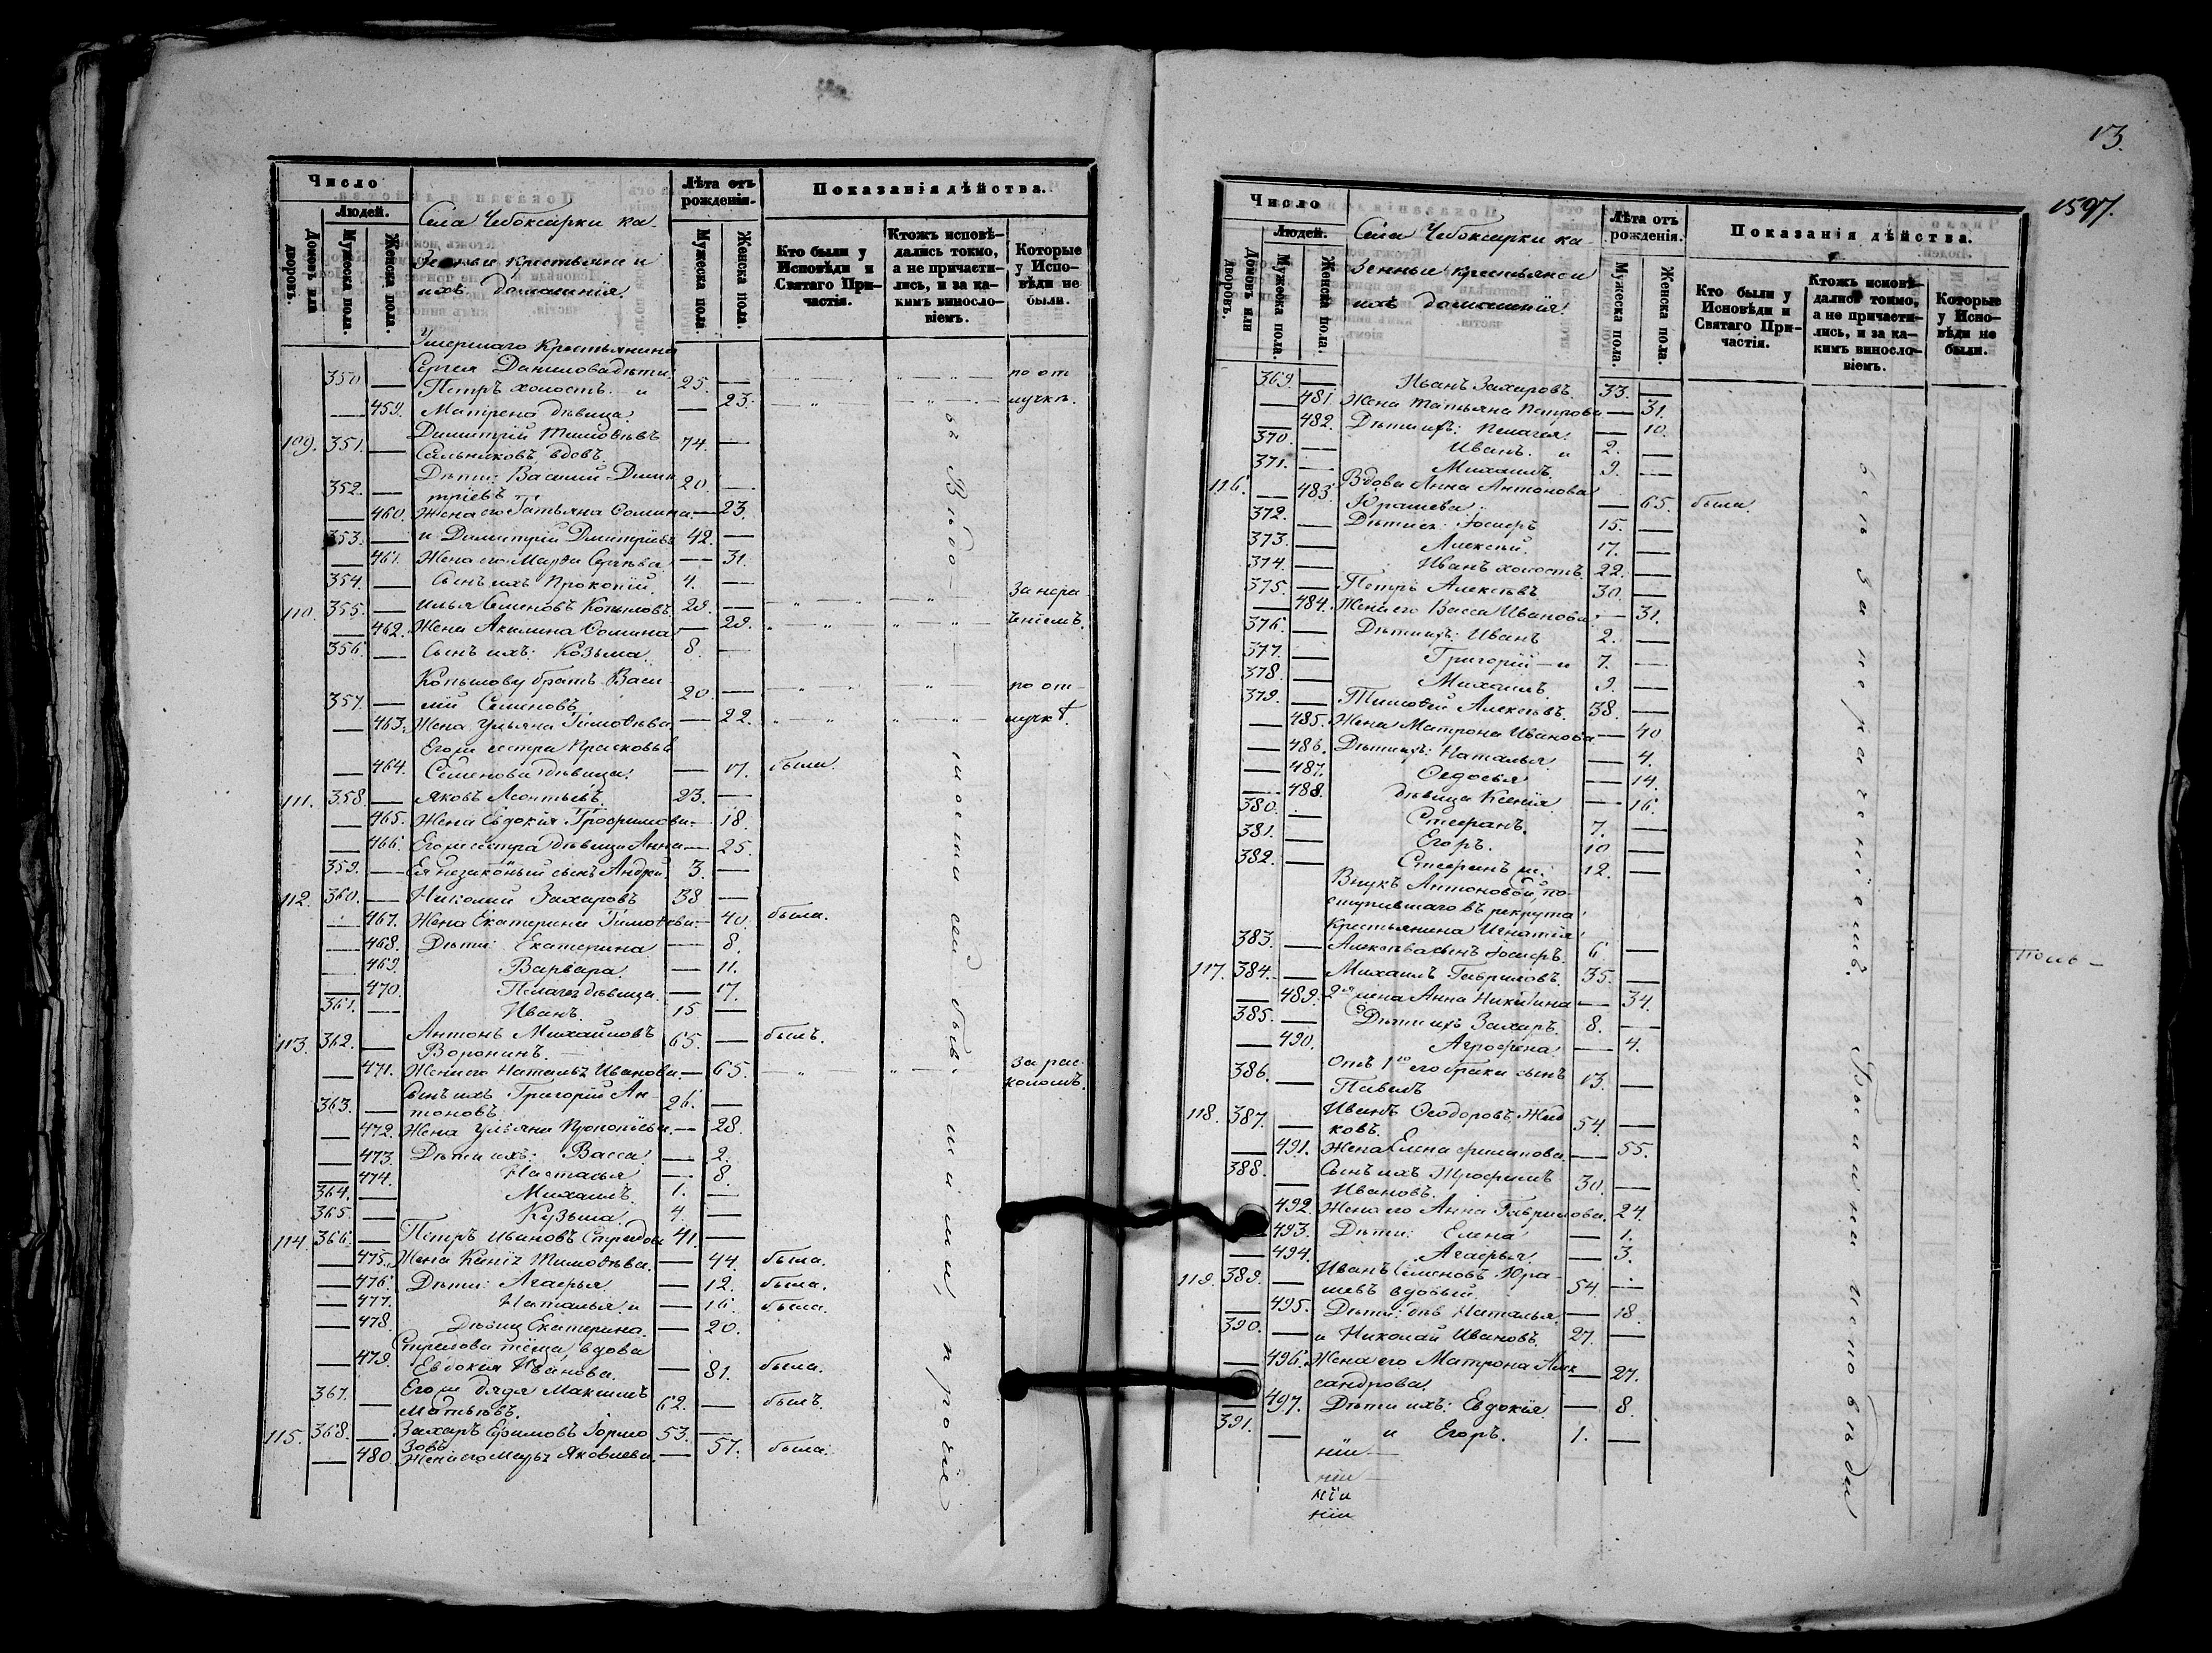 Число
Людей.
Домовъ или дворовъ.
Мужеска пола.
Женска пола.
Села Чебоксарки ка-
зенные крестьяне и
ихъ домашнія.
Лѣта отъ рожденія.
Мужеска пола.
Женска пола.
Показанія дѣйства.
Кто были у Исповѣди и Святаго При-частія.
Ктожъ исповѣ-дались токмо, а не причасти-лись, и за ка-кимъ винословіемъ.
Которые у Испо-вѣди не были.
Умершаго Крестьянина
Сергея Данилова дѣти:
350. — Петръ холостъ. и 25. — по от
— 459. Матрена дѣвица. — 23. лучкѣ.
109. 351. — Димитрій Тимоѳѣевъ
Сальниковъ, вдовъ. 74. —
352. — Дѣти: Василій Дими
тріевъ 20. —
— 460. Жена его Татьяна Ѳомина. — 23.
353. — и Димитрій Димитріевъ 42. —
— 461. Жена его Марѳа Сергѣева — 31.
354. — Сынъ ихъ Прокопій. 4. —
110. 355. — Илья Семеновъ Копыловъ. 29. — За нера
— 462. Жена Акилина Ѳомина. — 29. ченіемъ.
356. — Сынъ ихъ: Козьма. 8. —
Копылову братъ Васи
357. — лій Семеновъ 20. — по от-
— 463. Жена Ульяна Тимоѳѣева. — 22. лучкѣ.
Его же сестра Прасковья
— 464. Семенова дѣвица. — 17. была.
111. 358. — Яковъ Леонтьевъ. 23. —
— 465. Жена Евдокія Трофимова. — 18.
— 466. Его же сестра дѣвица Анна — 25.
359. — Ея незаконый сынъ Андрей 3. —
112. 360. — Николай Захаровъ 38 —
— 467. Жена Екатерина Тимоѳѣева. — 40. была.
— 468. Дѣти: Екатерина — 8.
— 469. Варвара. — 11.
— 470. Пелагея дѣвица. — 17.
361. — Иванъ. 15 —
113. 362. — Антонъ Михайловъ
Воронинъ. 65. — былъ.
— 471. Жена его Наталья Иванова. — 65. За рас-
колошъ.
363. — Сынъ ихъ Григорій Ан
тоновъ. 26. —
— 472. Жена Ульяна Прокопьева. — 28.
— 473. Дѣти ихъ: Васса. — 2.
— 474. Наталья — 8.
364. — Михаилъ. 1. —
365. — Кузьма. 4. —
114. 366. — Петръ Ивановъ 41. —
— 475. Жена Тимоѳѣева. — 44. была.
— 476. Дѣти: Агафья. — 12. была.
— 477. Наталья и — 16. была.
— 478. Дѣвица Екатерина. — 20.
теща, вдова
— 479. Евдокія Иванова. — 81. была.
367. — Его же дядя Максимъ
Матвѣевъ. 62. — былъ.
115. 368. — Захаръ Ефимовъ Гормо
зовъ 53. —
— 480. Жена его Яковлева. — 57. была.
въ Вѣдо-
мости сей быв-
шими, прочіе
13.
1597.
Число
Людей.
Домовъ или дворовъ.
Мужеска пола.
Женска пола.
Села Чебоксарки ка-
зенные крестьяне и
ихъ домашнія.
Лѣта отъ рожденія.
Мужеска пола.
Женска пола.
Показанія дѣйства.
Кто были у Исповѣди и Святаго При-частія.
Ктожъ исповѣ-дались токмо, а не причасти-лись, и за ка-кимъ винословіемъ.
Которые у Испо-вѣди не были.
369. — Иванъ Захаровъ. 33. —
— 481. Жена Татьяна Петрова — 31.
— 482. Дѣти ихъ: Пелагея. — 10.
370. — Иванъ. и 2. —
371. — Михаилъ. 9. —
116. — 483. Вдова Анна Антонова
Юрашева. — 65. была.
372. — Дѣти ея: Іосифъ 15. —
373. — Алексѣй. 17. —
374. — Иванъ холостъ. 22. —
375. — Петръ Алексѣевъ 30. —
— 484. Жена его Васса Иванова. — 31.
376. — Дѣти ихъ: Иванъ 2. —
377. — Григорій — и 7. —
378. — Михаилъ. 9. —
379. — Тимоѳей Алексѣевъ. 38. —
— 485. Жена Матрона Иванова — 40
— 486. Дѣти ихъ: Наталья. — 4.
— 487. Ѳедосья — 14.
— 488. дѣвица Ксенія — 16.
380. — Стефанъ. 7. —
381. — Егоръ. 10 —
382. — Стефанъ же. 12. —
Внукъ Антоновой, по-
ступившаго въ рекрута
Крестьянина Игнатія
383. — Алексѣева сынъ Іосифъ. 6 —
117. 384. — Михаилъ Гавриловъ. 35. —
— 489. 2я жена Анна Никитина — 34.
385. — Дѣти ихъ Захаръ. 8. —
— 490. Агрофена. — 4.
386. — Отъ 1го его брака сынъ
Павелъ 13. —
118. 387. — Иванъ Ѳеодоровъ Жид
ковъ. 54. —
— 491. Жена Елена Филипова — 55.
388. — Сынъ ихъ Трофимъ
Ивановъ. 30. —
— 492. Жена его Анна Гаврилова. 24.
— 493. Дѣти: Елена — 1.
— 494. Агафья. — 3.
119. 389. — Иванъ Семеновъ Юра-
шевъ вдовый. 54. —
— 495. Дѣти: дѣв. Наталья. — 18.
390. — и Николай Ивановъ. 27. —
— 496. Жена его Матрона Алек
сандрова. — 27.
— 497. Дѣти ихъ: Евдокія. — 8.
391. — и Егоръ. 1. —
ніи —
ніи —
ніи
ніи
за нераченіемъ. Были на исповѣди
толь-